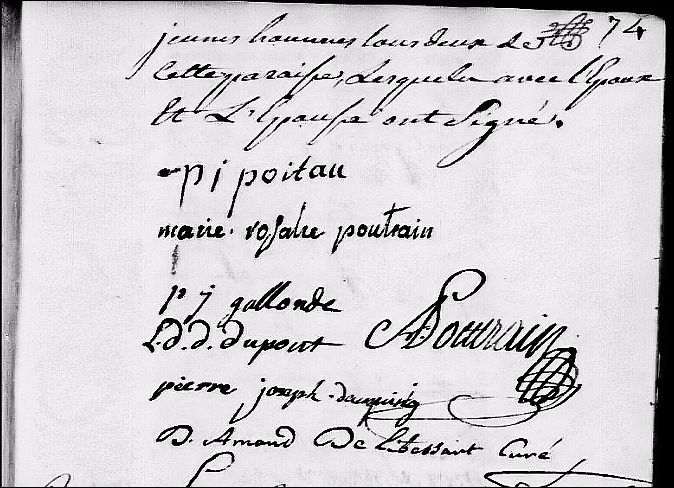 74
jeunes hommes tous deux de
cette paroisse, lesqueles avec l'Epoux
Et L'Epouse ont signé.
p j poitau
marie rosalie poutrain
p j gallonde
L. d. d. dupont A Poutrain
pierre joseph
D. Amand De curé